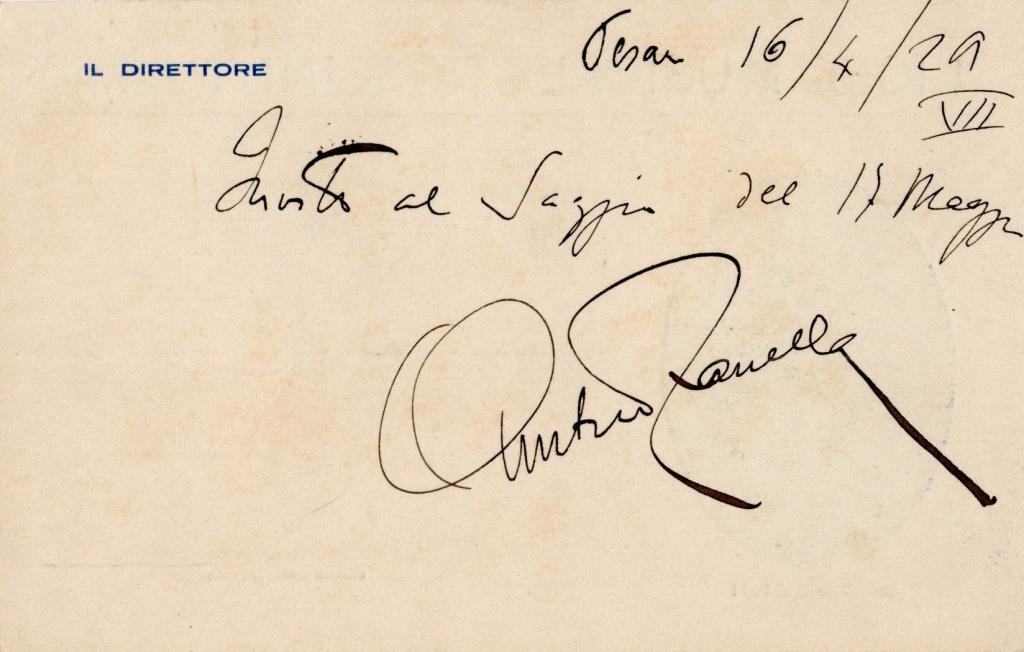 IL DIRETTORE
Pesaro 16/4/29
VII
Invito al Saggio del 17 Maggio
Amilcare Zanella